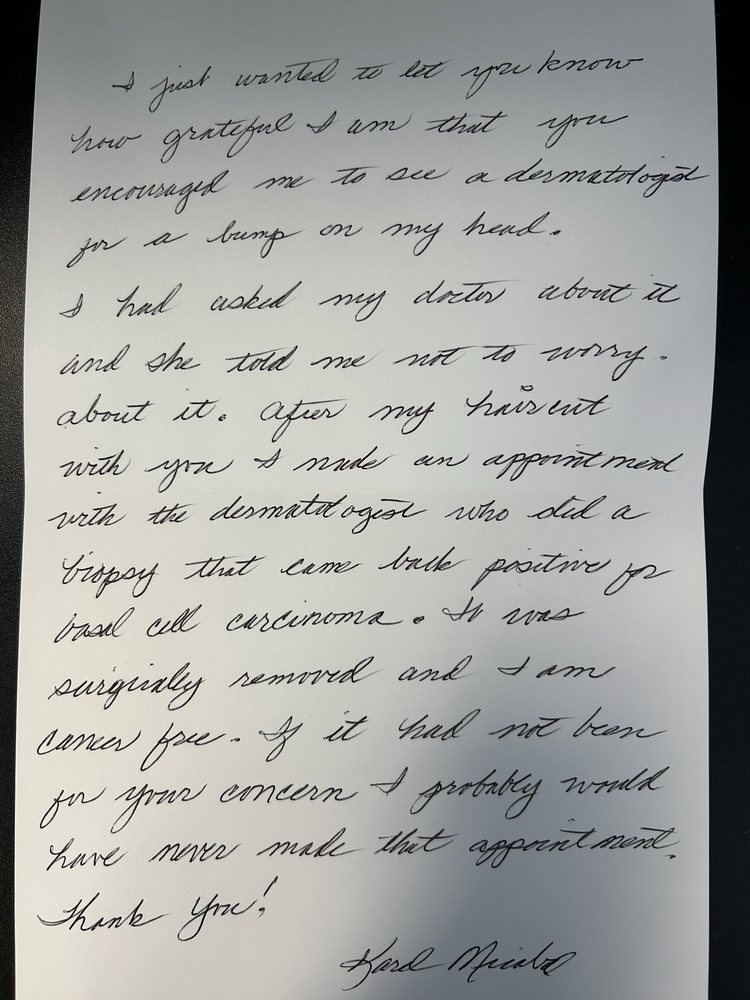 I just wanted to let you know
how grateful I am that you
encouraged me to see a dermatologist
for a bump on my head.
I had asked my doctor about it
and she told me not to worry.
about it. After my haircut
with you I made an appointment
with the dermatologist who did a
biopsy that came back positive for
basal cell carcinoma. It was
surgically removed and I am
cancer free. If it had not been
for your concern I probably would
have never made that appointment.
Thank You!